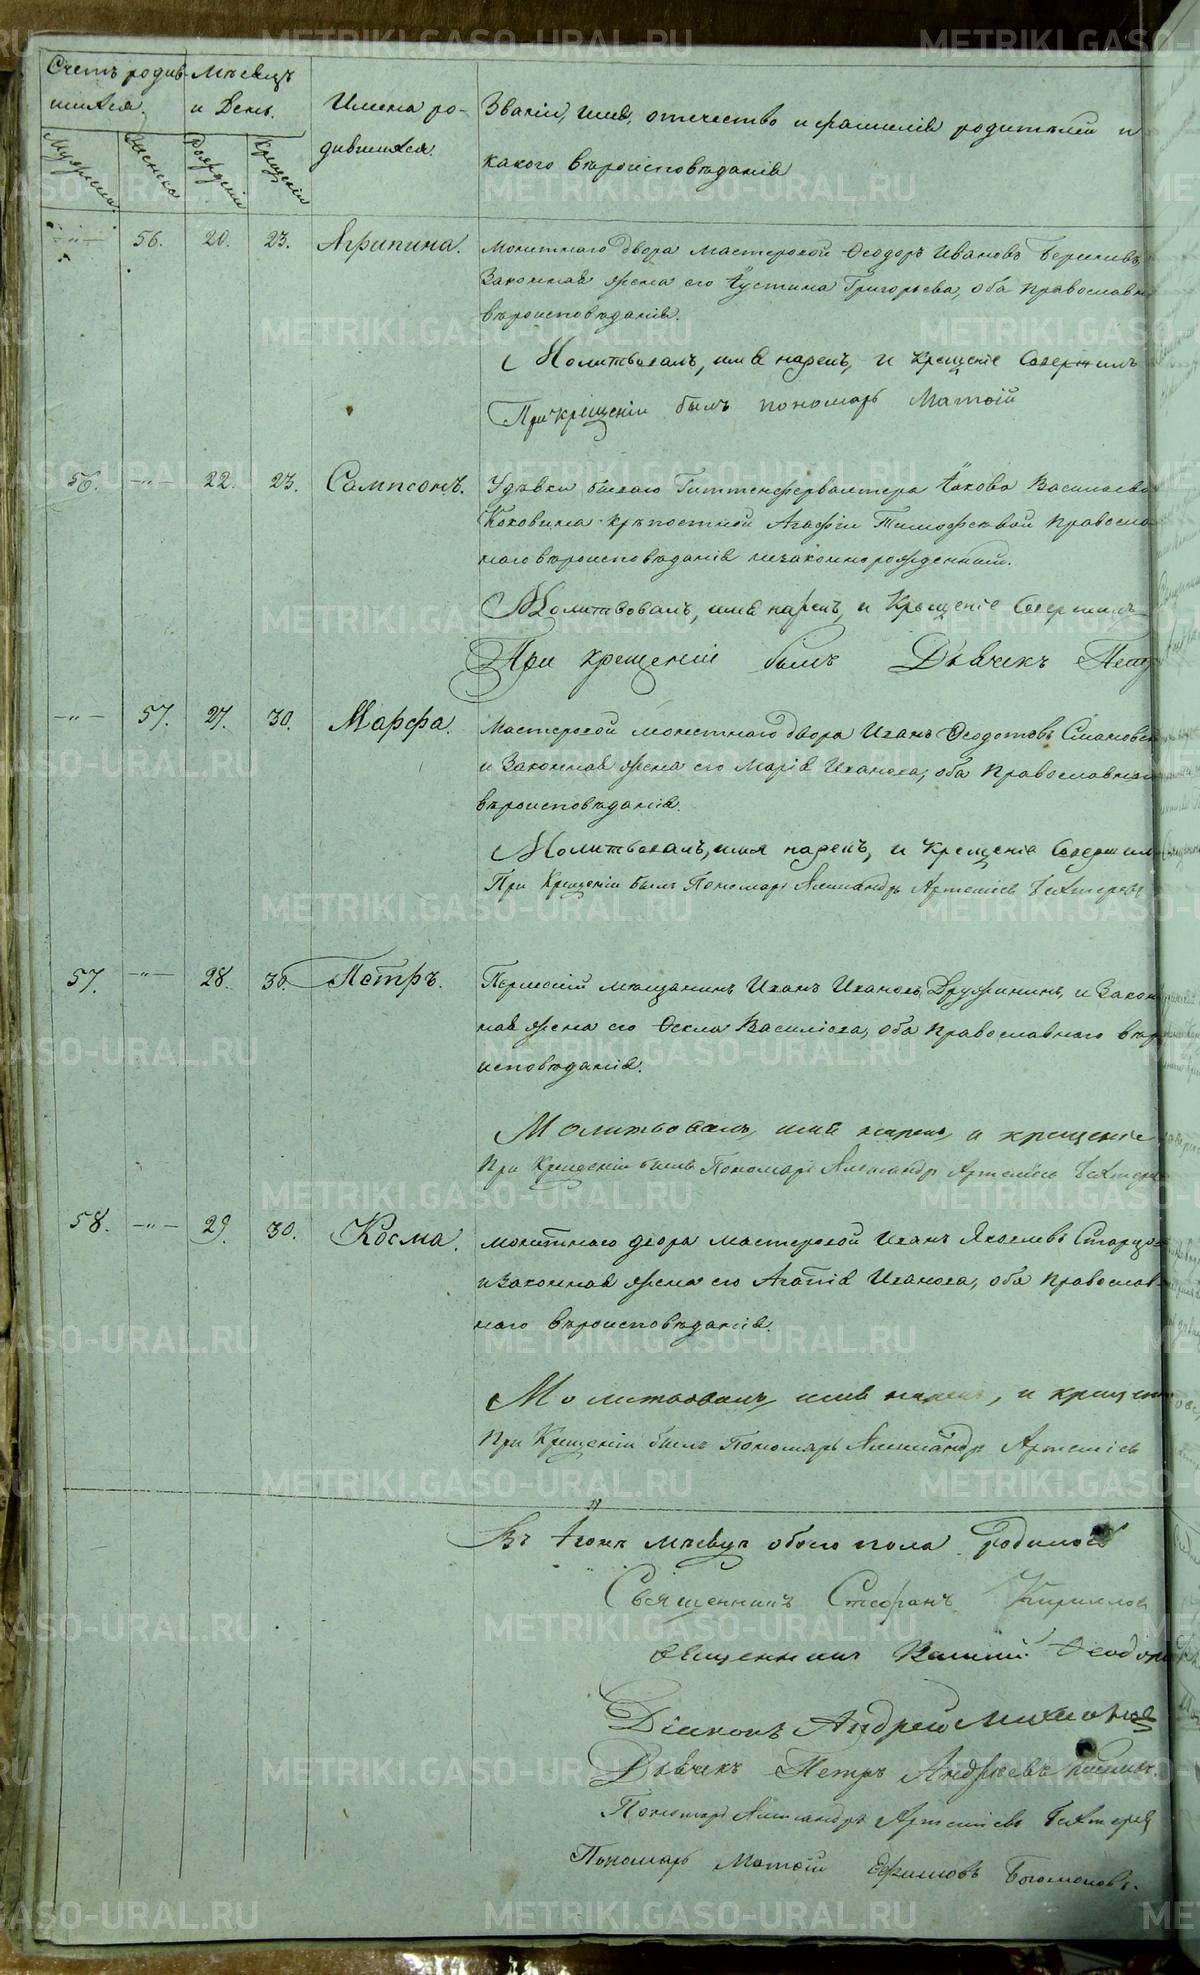 Счетъ родив-
шихся.
Мѣсяцъ
и День.
Имена ро-
дившихся.
Званіе, имя, отечество и фамилія родителей и
какого вѣроисповѣданія
Мужеска.
Женска
Рожденія
Крещенія
—"— 56. 20. 23. Агрипина. Монетнаго двора мастеровой Ѳеодоръ Ивановъ
Законная жена его Іустина Григорьева, оба православн
вѣроисповѣданія.
Молитвовалъ, имя нарекъ, и крещеніе совершилъ
При крещеніи былъ пономарь Матѳій
56. —"— 22. 23. Сампсонъ. У дѣвки бывшаго Гиттенфервалтера Іакова Васильева
Коковина крѣпостной Агафіи Тимофеевой Правосла
наго вѣроисповѣданія незаконнорожденный.
Молитвовалъ, имя нарекъ, и Крещеніе Совершилъ
При крещеніи былъ Дьячекъ Петр
—"— 57. 27. 30. Марфа. Мастеровой монетнаго двора Иванъ Ѳеодотовъ
и Законная жена его Марія Иванова, оба Православнаго
вѣроисповѣданія.
Молитвовалъ, имя нарекъ, и Крещеніе Совершил
При Крещеніи былъ Пономарь Александръ Артеміевъ Бехтеревъ
57. —"— 28. 30. Петръ. Пермскій мѣщанинъ Иванъ Ивановъ Дружининъ, и Закон
ная жена его Ѳекла Василіева, оба Православнаго вѣро
исповѣданія.
Молитвовалъ, имя нарекъ, и крещеніе
При Крещеніи былъ Пономарь Александръ Артеміевъ Бехтере
58. —"— 29. 30. Косма. Монетнаго двора мастеровой Иванъ Яковлевъ
и Законная жена его Агапія Иванова, оба Православ
наго вѣроисповѣданія.
Молитвовалъ, имя нарекъ, и крещені
При Крещеніи былъ Пономарь Александръ Артеміев
Въ Іюнѣ мѣсяцѣ обоего пола родилось
Священникъ Стефанъ Кириллов
Священникъ Ѳеодор
Діаконъ Андрей
Дьячекъ Петръ Андреевъ
Пономарь Александръ Артеміевъ Бехтерев
Пономарь Матѳій Ефимовъ Богомоловъ.
METRIKI.GASO-URAL.RU